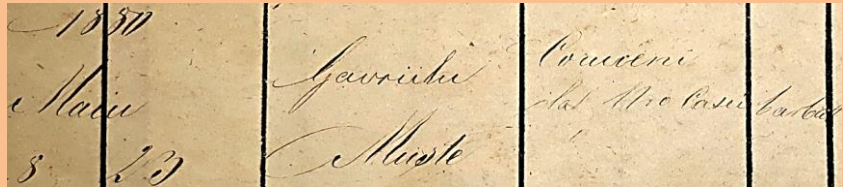 1880
Maiu
8 23
Gavriilu
Muste
Coruieni
Nro Casei
barbat